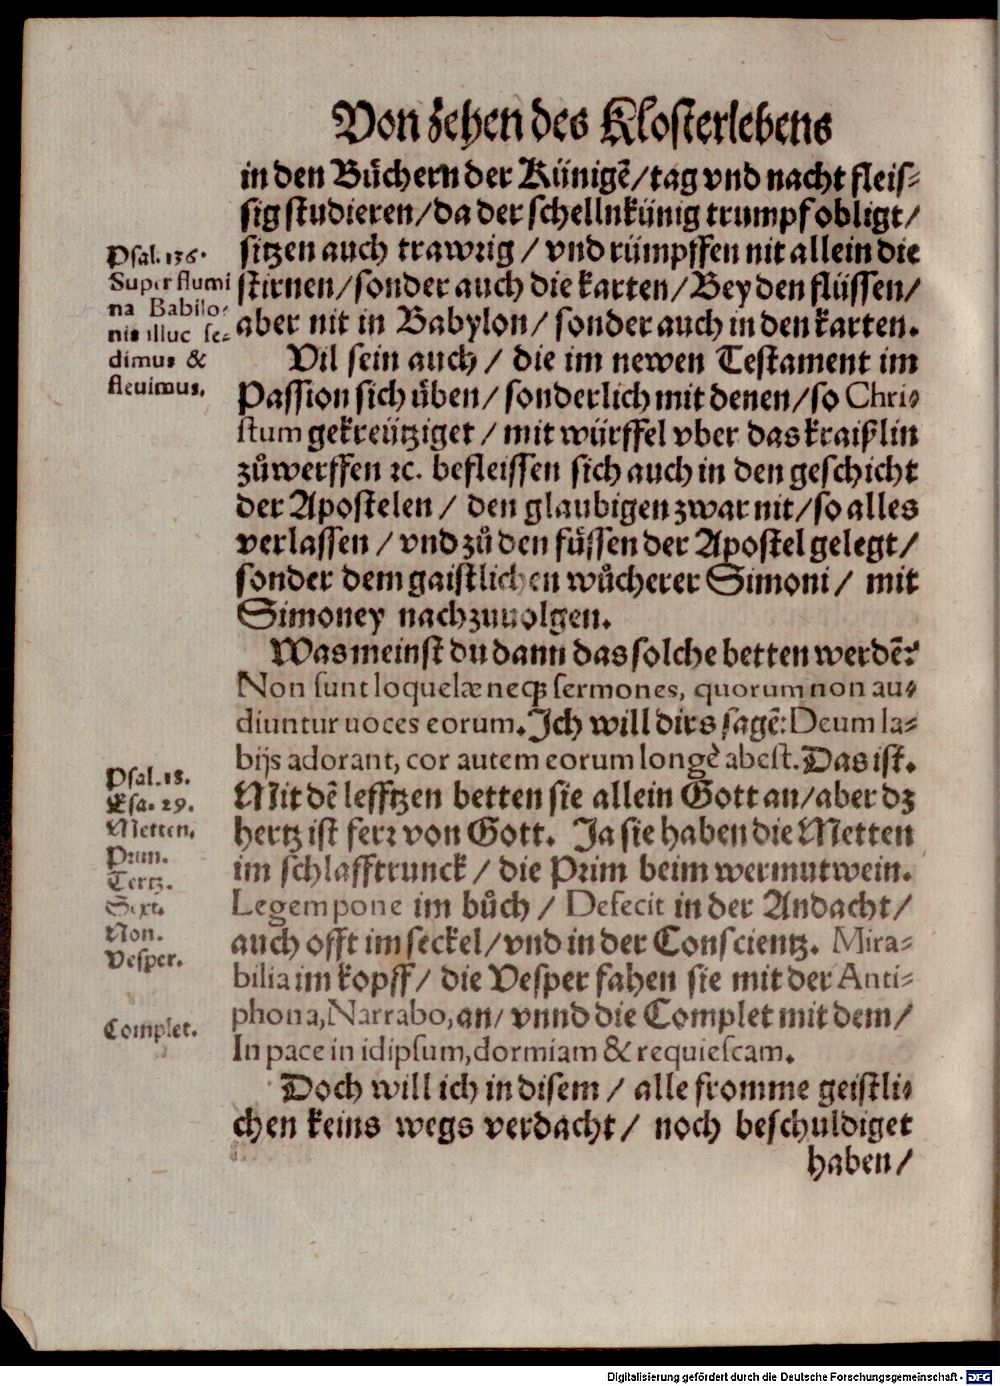 Von zehen des Klosterlebens
in den Bůchern der Künigẽ/tag vnd nacht fleis⸗
sig studieren/da der schellnkünig trumpf obligt/
sitzen auch trawrig / vnd rümpffen nit allein die
stirnen/sonder auch die karten/Bey den flüssen/
aber nit in Babylon/ sonder auch in den karten.
Vil sein auch / die im newen Testament im
Passion sich üben/ sonderlich mit denen/so Chri⸗
stum gekreütziget / mit würffel vber das kraißlin
zůwerffen ꝛc. befleissen sich auch in den geschicht
der Apostelen / den glaubigen zwar nit/so alles
verlassen / vnd zů den füssen der Apostel gelegt/
sonder dem gaistlichen wůcherer Simoni/ mit
Simoney nachzuuolgen.
Was meinst du dann das solche betten werdẽ?
Non sunt loquelæ neqꝫ sermones, quorum non au⸗
diuntur uoces eorum. Ich will dirs sagẽ: Deum la⸗
bijs adorant, cor autem eorum longè abest. Das ist.
Mit dẽ lefftzen betten sie allein Gott an/aber dz
hertz ist ferꝛ von Gott. Ja sie haben die Metten
im schlafftrunck / die Prim beim wermutwein.
Legem pone im bůch / Defecit in der Andacht/
auch offt im seckel/vnd in der Conscientz. Mira⸗
bilia im kopff/ die Vesper fahen sie mit der Anti⸗
phona, Narrabo, an/ vnnd die Complet mit dem/
In pace in idipsum, dormiam & requiescam.
Doch will ich in disem / alle fromme geistli⸗
chen keins wegs verdacht/ noch beschuldiget
haben/
Psal. 136.
Super flumi
na Babilo⸗
nis illuc se⸗
dimus &
fleuimus.
Psal. 18.
Esa. 29.
Metten.
Prim.
Tertz.
Sext.
Non.
Vesper.
Complet.
Digitalisierung gefördert durch die Deutsche Forschungsgemeinschaft - DFG